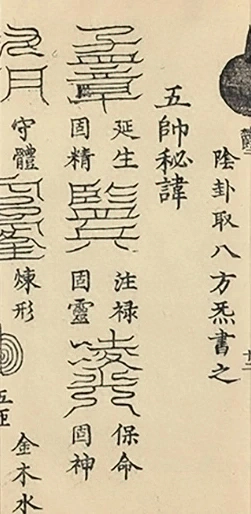 陰卦取八方炁書之
五帥秘諱
孟章
延生
固精
監兵
注禄
固靈
凌光
保命
固神
守體
煉形
金木水